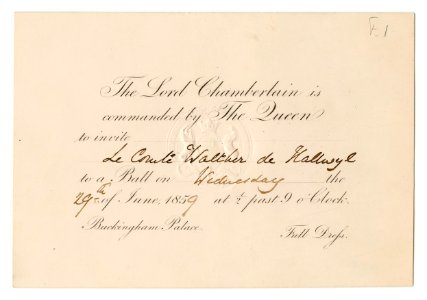 E1
The Lord Chamberlain is
commanded by The Queen
to invite
Le Comte Walther de Hallwyl
to a Ball on Wednesday the
29th of June, 1859 at ½ past 9 o'Clock.
Buckingham Palace.
Full Dress.